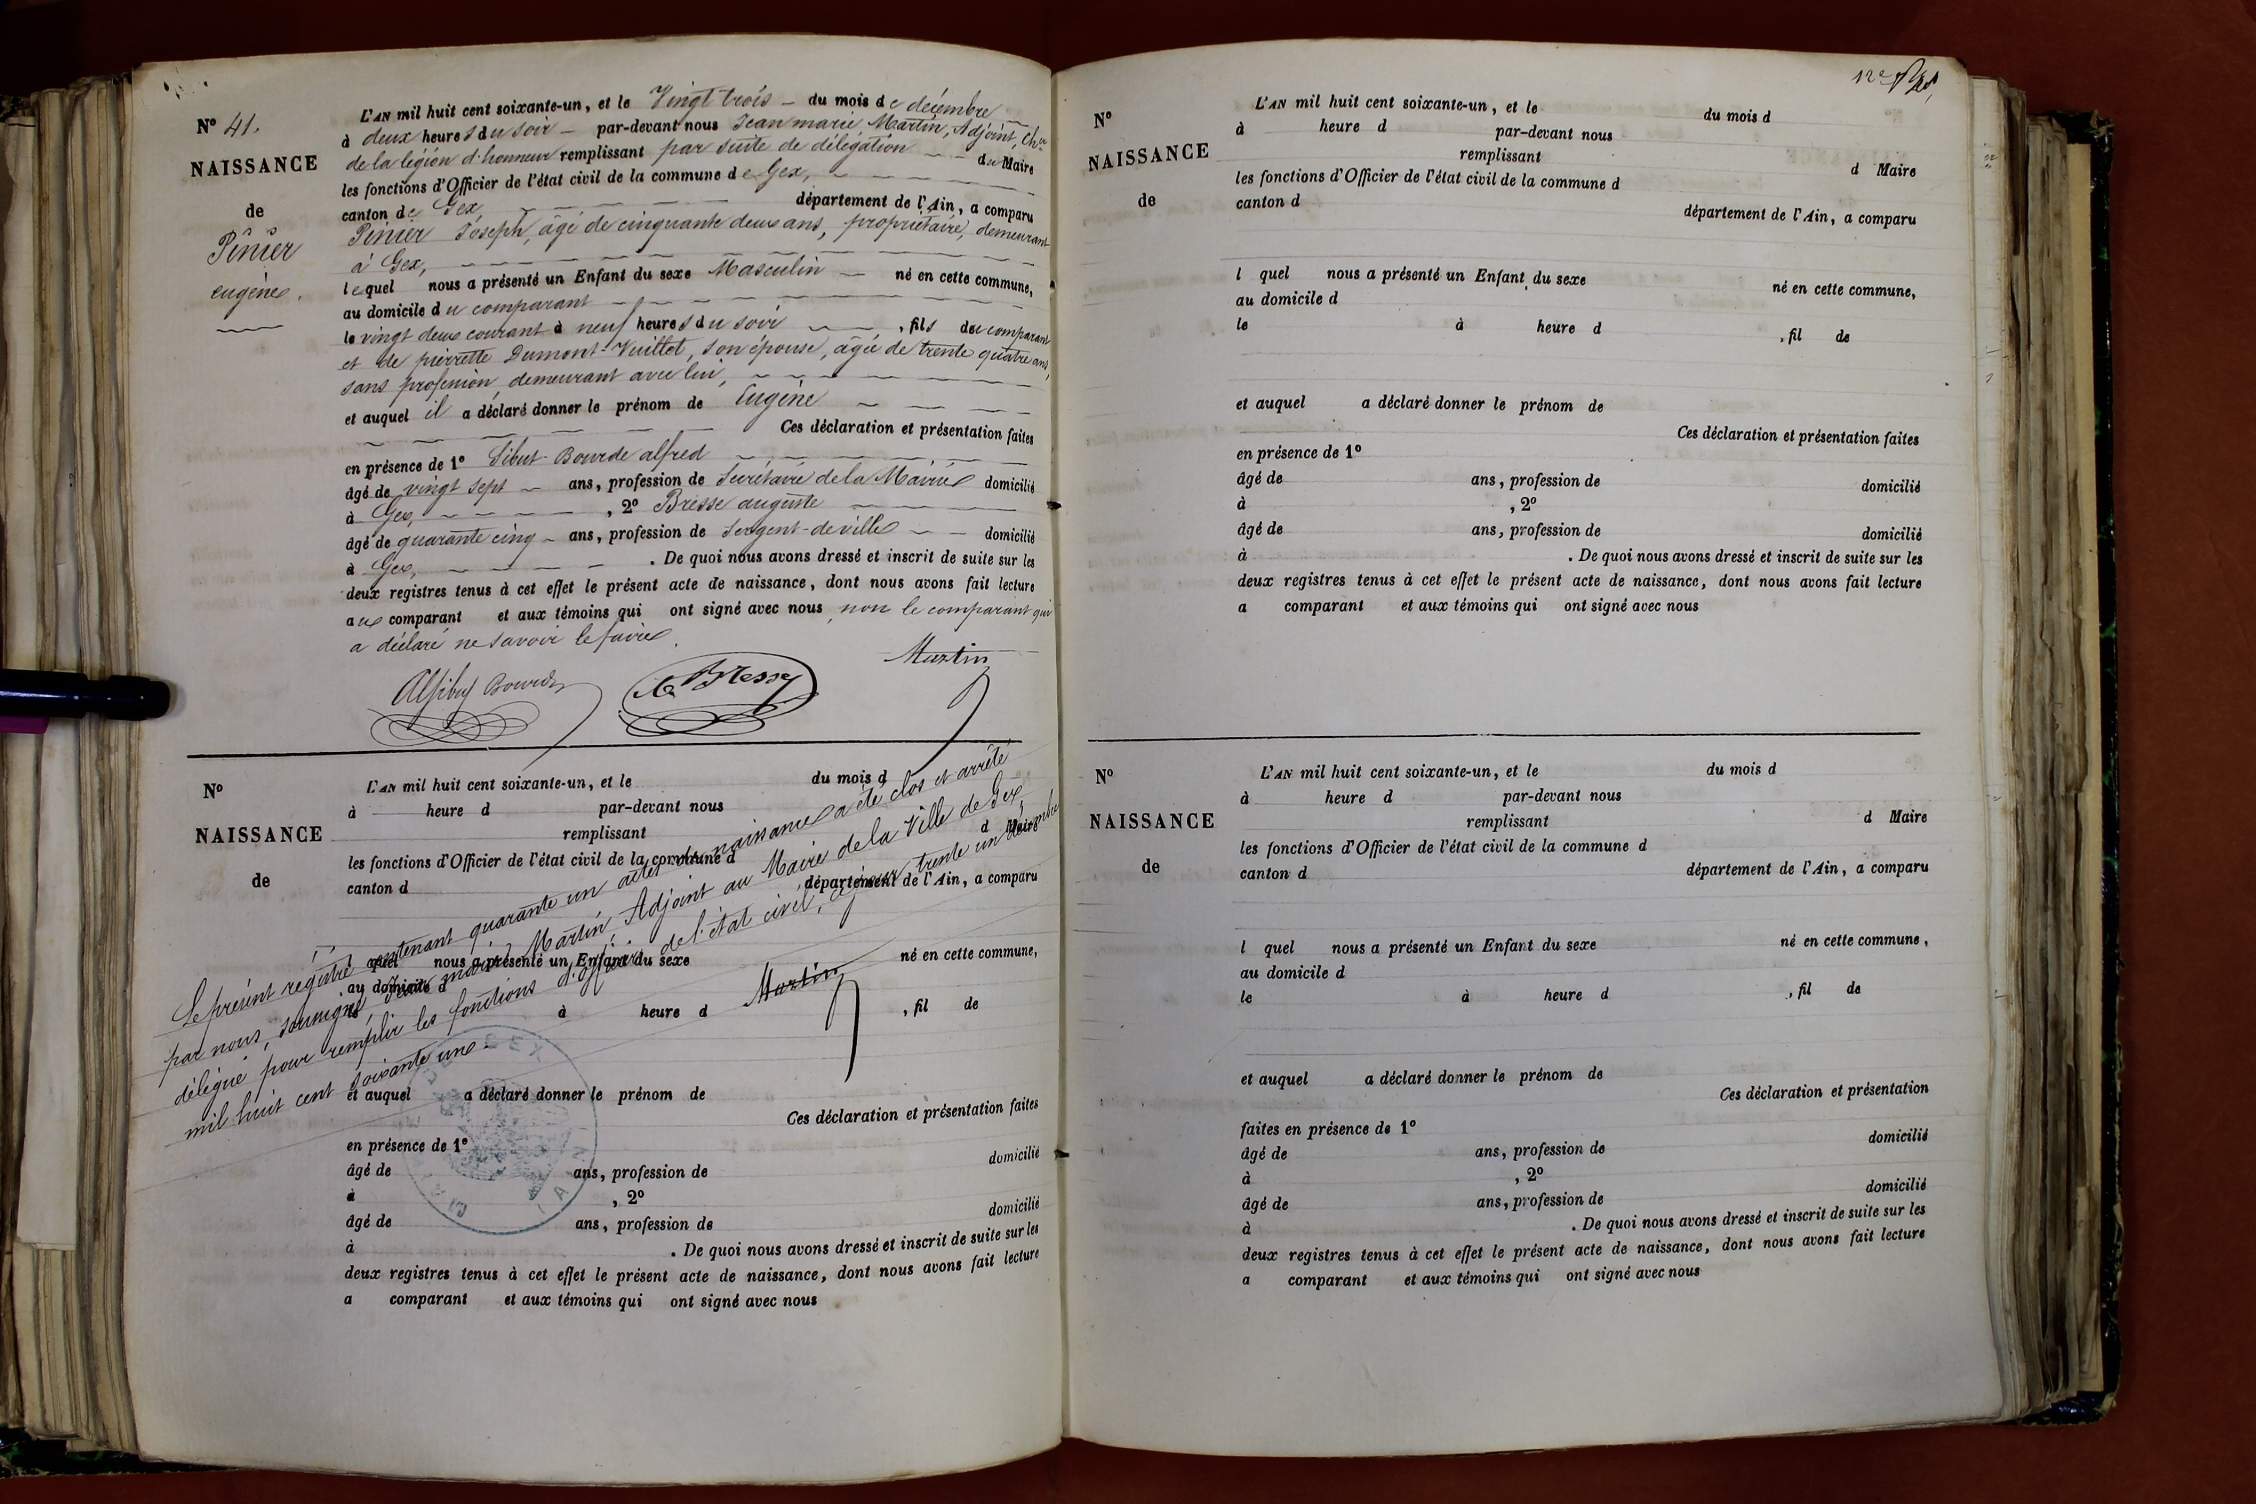 N° 41.
NAISSANCE
de
Pinier
eugène.
L'AN mil huit cent soixante-un, et le Vingt trois du mois de décembre
à deux heures du soir par-devant nous Jean marie Martin, Adjoint, Cher
de la légion d'honneur remplissant par suite de délégation du Maire
les fonctions d'Officier de l'état civil de la commune de Gex,
canton de Gex département de l'Ain, a comparu
Pinier Joseph, âgé de cinquante deux ans, propriétaire, demeurant
à Gex,
lequel nous a présenté un Enfant du sexe Masculin né en cette commune,
au domicile du comparant
le vingt deux courant à neuf heures du soir, fils du comparant
et de pierrette Dumont-Vuillet, son épouse, âgée de trente quatre ans,
sans profession, demeurant avec lui,
et auquel il a déclaré donner le prénom de Eugène
Ces déclaration et présentation faites
en présence de 1° Sibut-Bourde alfred
âgé de vingt sept ans, profession de Secrétaire de la Mairie domicilié
à Gex, , 2° Bresse auguste
âgé de quarante cinq ans, profession de Sergent-de ville domicilié
à Gex, . De quoi nous avons dressé et inscrit de suite sur les
deux registres tenus à cet effet le présent acte de naissance, dont nous avons fait lecture
aux comparant et aux témoins qui ont signé avec nous, non le comparant qui
a déclaré ne savoir le faire.
ASibut Bourde
A Bresse
Martin
N°
NAISSANCE
de
L'AN mil huit cent soixante-un, et le du mois d
à heure d par-devant nous
remplissant d Maire
les fonctions d'Officier de l'état civil de la commune d
canton d département de l'Ain, a comparu
l quel nous a présenté un Enfant du sexe né en cette commune,
au domicile d
le à heure d , fil de
et auquel a déclaré donner le prénom de
Ces déclaration et présentation faites
en présence de 1°
âgé de ans, profession de domicilié
à , 2°
âgé de ans, profession de domicilié
à . De quoi nous avons dressé et inscrit de suite sur les
deux registres tenus à cet effet le présent acte de naissance, dont nous avons fait lecture
a comparant et aux témoins qui ont signé avec nous
Le présent registre contenant quarante un actes de naissances a été clos et arrêté
par nous, soussigné, Jean marie Martin, Adjoint au Maire de la Ville de Gex,
délégué pour remplir les fonctions d'officier de l'état civil, ce jour trente un décembre
mil huit cent soixante une.
Martin
GEX
AIN
12e
N°
NAISSANCE
de
L'AN mil huit cent soixante-un, et le du mois d
à heure d par-devant nous
remplissant d Maire
les fonctions d'Officier de l'état civil de la commune d
canton d département de l'Ain, a comparu
l quel nous a présenté un Enfant du sexe né en cette commune,
au domicile d
le à heure d , fil de
et auquel a déclaré donner le prénom de
Ces déclaration et présentation faites
en présence de 1°
âgé de ans, profession de domicilié
à , 2°
âgé de ans, profession de domicilié
à . De quoi nous avons dressé et inscrit de suite sur les
deux registres tenus à cet effet le présent acte de naissance, dont nous avons fait lecture
a comparant et aux témoins qui ont signé avec nous
N°
NAISSANCE
de
L'AN mil huit cent soixante-un, et le du mois d
à heure d par-devant nous
remplissant d Maire
les fonctions d'Officier de l'état civil de la commune d
canton d département de l'Ain, a comparu
l quel nous a présenté un Enfant du sexe né en cette commune,
au domicile d
le à heure d , fil de
et auquel a déclaré donner le prénom de
Ces déclaration et présentation
faites en présence de 1°
âgé de ans, profession de domicilié
à , 2°
âgé de ans, profession de domicilié
à . De quoi nous avons dressé et inscrit de suite sur les
deux registres tenus à cet effet le présent acte de naissance, dont nous avons fait lecture
a comparant et aux témoins qui ont signé avec nous